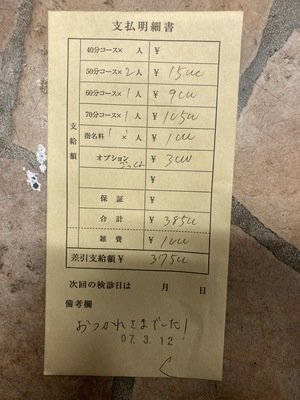 支払明細書
40分コース× 人 ¥
50分コース× 2人 ¥ 15000
60分コース× 1人 ¥ 9000
70分コース× 1人 ¥ 10500
指名料 1 × 1人 ¥ 1000
オプション ¥ 3000
ごっくん
¥
保証 ¥
合計 ¥ 38500
支給額
雑費 ¥ 1000
差引支給額 ¥ 37500
次回の検診日は 月 日
備考欄
おつかれさまでした!
07.3.12